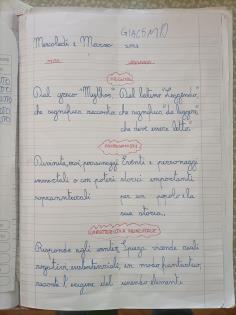 GIACOMO
Mercoledì 1 Marzo 2023
MITO LEGGENDA
ORIGINI
Dal greco "Mythos" Dal latino "Legenda",
che significa racconto che significa "da leggere",
che deve essere letto".
PERSONAGGI
Divinità, eroi, personaggi Eventi e personaggi
immortali o con poteri storici importanti
soprannaturali per un popolo e la
sua storia.
CARATTERISTICHE PRINCIPALI
Risponde agli Spiega vicende reali
in modo fantastico,
racconta l'origine del elementi